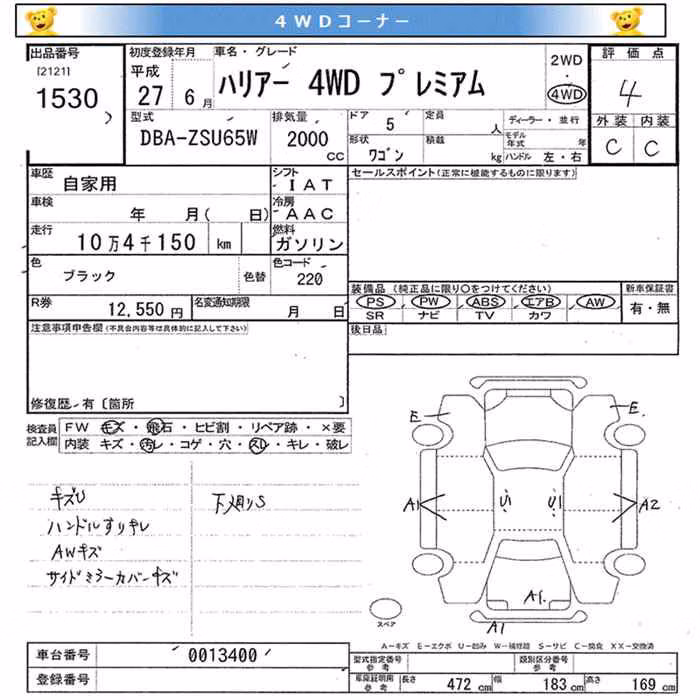 4WDコーナー
出品番号
[2121]
1530
初度登録年月
平成
27 6月
車名・グレード
ハリアー 4WD プレミアム
2WD
・
4WD
評価点
4
外装 内装
C C
型式
DBA-ZSU65W
排気量
2000
CC
ドア
5
定員
人
形状
ワゴン
積載
kg
ディーラー・並行
モデル年式 年
ハンドル 左・右
車歴
自家用
シフト
IAT
車検
年 月( 日)
冷房
AAC
走行
10万4千150 km
燃料
ガソリン
色
ブラック
色替
色コード
220
R券
12,550円
名変通知期限
月 日
セールスポイント(正常に機能するものに限ります)
装備品(純正品に限り○をつけてください)
PS PW ABS エアB AW
SR ナビ TV カワ
新車保証書
有・無
後日品
注意事項申告欄(不具合内容等は具体的に記入して下さい)
修復歴・有〔箇所 〕
検査員記入欄
FW キズ・飛石・ヒビ割・リペア跡・×要
内装 キズ・汚レ・コゲ・穴・スレ・キレ・破レ
キズU
ハンドルすりキレ
AWキズ
サイドミラーカバーキズ
下廻りS
E
E
A1
A2
A1
A1
スペア
A-キズ E-エクボ U-凹み W-補修跡 S-サビ C-腐食 XX-交換済
車台番号
0013400
登録番号
型式指定番号
参考
類別区分番号
参考
車庫証明用
参考
長さ 472cm 幅 183cm 高さ 169cm